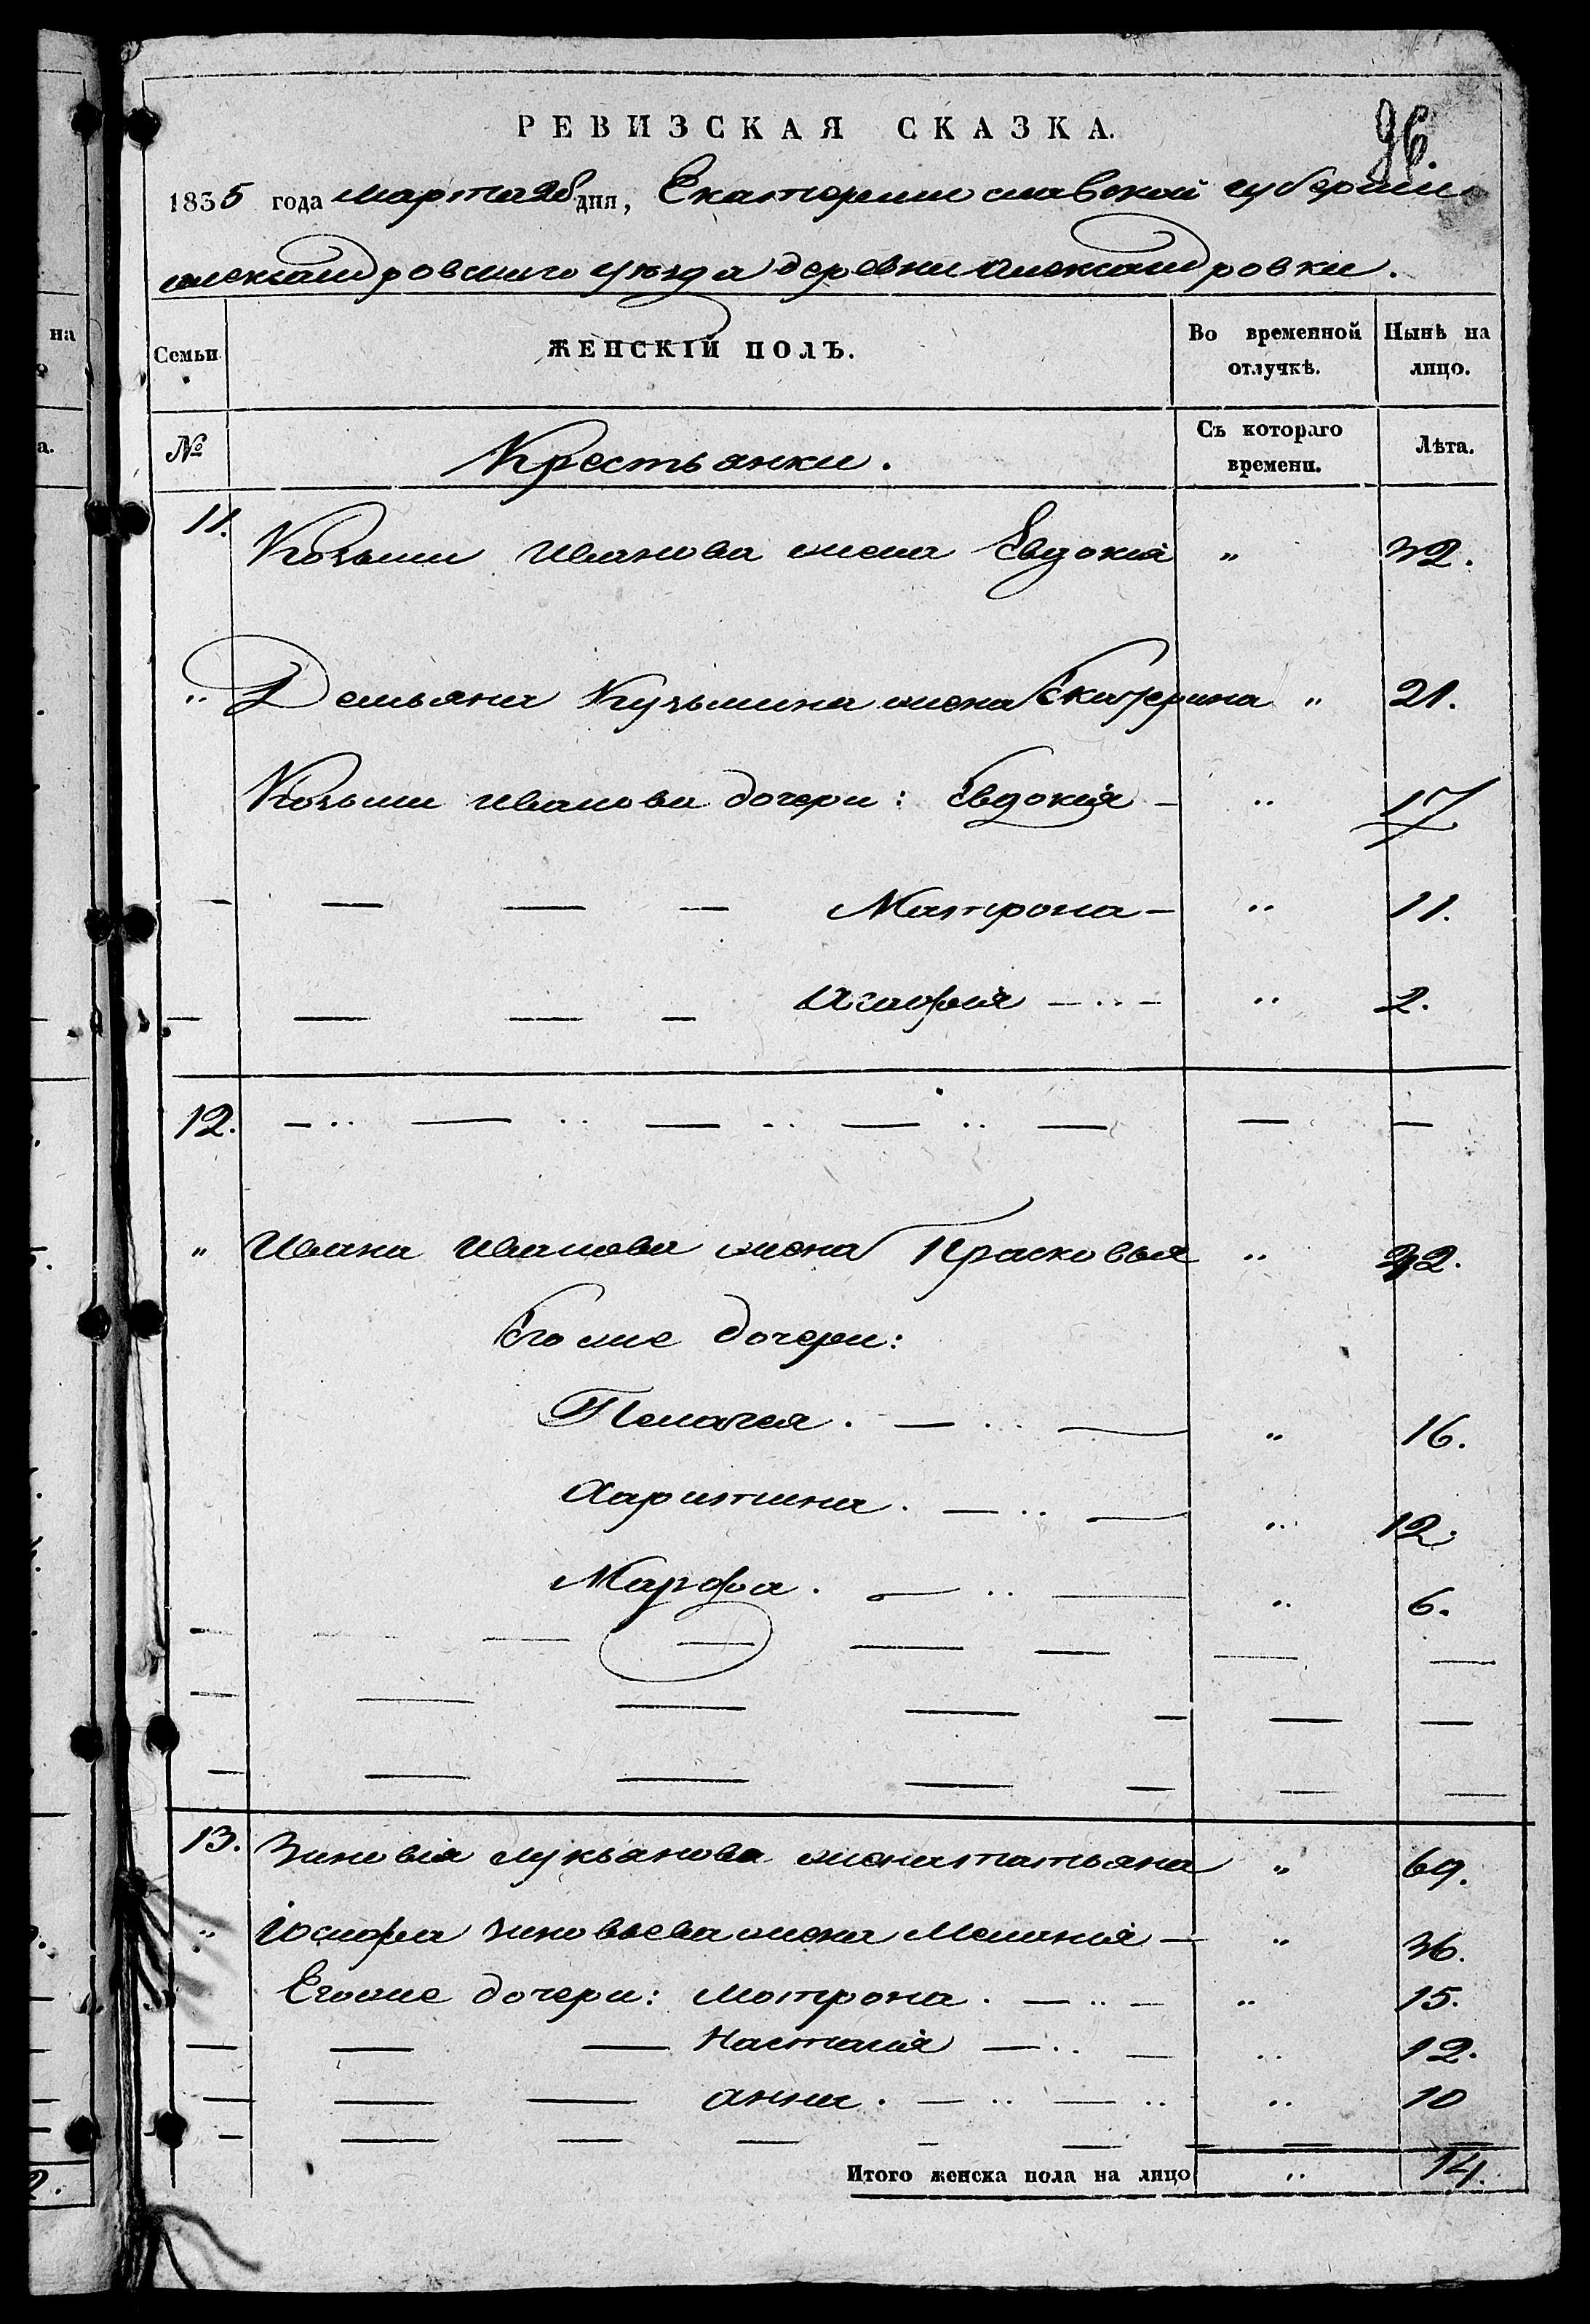 РЕВИЗСКАЯ СКАЗКА.
96.
1835 года марта 28 дня, Екатеринославской губернии
александровского уезда деревни александровки.
Семьи
ЖЕНСКІЙ ПОЛЪ.
Во временной отлучкѣ.
Нынѣ на лицо.
№
Крестьянки.
Съ котораго времени.
Лѣта.
11. Козьми Иванова жена Евдокія " 32.
" Демьяна Кузьмина жена Екатерина " 21.
Козьми иванова дочери: Евдокія — " 17
— — — — Матрона — " 11.
— — — — " 2.
12. — — — — — — —
" Ивана Иванова жена Прасковья " 32.
Его же дочери:
Пелагея. — — " 16.
Харитина. — — " 12.
Марфа. — — " 6.
13. Зиновія лукьянова жена татьяна " 69.
" Іосифа зиновьева жена Меланія — " 36.
Егоже дочери: мотрона. — — " 15.
— — — Настасія — — " 12.
— — — анна. — — " 10
Итого женска пола на лицо " 14.
на
а.
2.